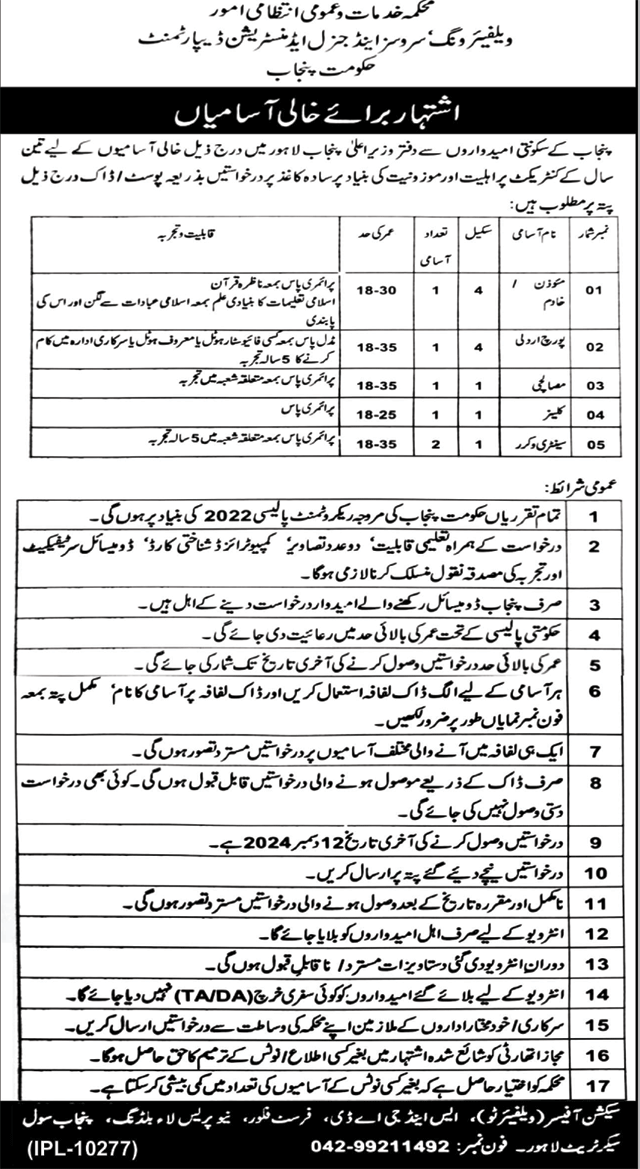 محکمہ خدمات و عمومی انتظامی امور
ویلفیئر ونگ، سروسز اینڈ جنرل ایڈمنسٹریشن ڈیپارٹمنٹ
حکومت پنجاب
اشتہار برائے خالی آسامیاں
پنجاب کے سکونتی امیدواروں سے دفتر وزیر اعلیٰ پنجاب لاہور میں درج ذیل خالی آسامیوں کے لیے تین
سال کے کنٹریکٹ پر اہلیت اور موزونیت کی بنیاد پر سادہ کاغذ پر درخواستیں بذریعہ پوسٹ/ ڈاک درج ذیل
پتہ پر مطلوب ہیں:
نمبر شمار نام آسامی سکیل تعداد آسامی عمر کی حد قابلیت و تجربہ
01 مئوذن / خادم 4 1 18-30 پرائمری پاس بمعہ ناظرہ قرآن
اسلامی تعلیمات کا بنیادی علم بمعہ اسلامی عبادات سے لگن اور اس کی
پابندی
02 پورچ اردلی 4 1 18-35 مڈل پاس بمعہ کسی فائیو سٹار ہوٹل یا معروف ہوٹل یا سرکاری ادارہ میں کام
کرنے کا 5 سالہ تجربہ
03 مصالچی 1 1 18-35 پرائمری پاس بمعہ متعلقہ شعبہ میں تجربہ
04 کلینر 1 1 18-25 پرائمری پاس
05 سینٹری ورکر 1 2 18-35 پرائمری پاس بمعہ متعلقہ شعبہ میں 5 سالہ تجربہ
عمومی شرائط:
1 تمام تقرریاں حکومت پنجاب کی مروجہ ریکروٹمنٹ پالیسی 2022 کی بنیاد پر ہوں گی۔
2 درخواست کے ہمراہ تعلیمی قابلیت، دو عدد تصاویر، کمپیوٹرائزڈ شناختی کارڈ، ڈومیسائل سرٹیفکیٹ
اور تجربہ کی مصدقہ نقول منسلک کرنا لازمی ہوگا۔
3 صرف پنجاب ڈومیسائل رکھنے والے امیدوار درخواست دینے کے اہل ہیں۔
4 حکومتی پالیسی کے تحت عمر کی بالائی حد میں رعائیت دی جائے گی۔
5 عمر کی بالائی حد درخواستیں وصول کرنے کی آخری تاریخ تک شمار کی جائے گی۔
6 ہر آسامی کے لیے الگ ڈاک لفافہ استعمال کریں اور ڈاک لفافہ پر آسامی کا نام، مکمل پتہ بمعہ
فون نمبر نمایاں طور پر ضرور لکھیں۔
7 ایک ہی لفافہ میں آنے والی مختلف آسامیوں پر درخواستیں مسترد تصور ہوں گی۔
8 صرف ڈاک کے ذریعے موصول ہونے والی درخواستیں قابل قبول ہوں گی۔ کوئی بھی درخواست
دستی وصول نہیں کی جائے گی۔
9 درخواستیں وصول کرنے کی آخری تاریخ 12 دسمبر 2024 ہے۔
10 درخواستیں نیچے دیئے گئے پتہ پر ارسال کریں۔
11 نامکمل اور مقررہ تاریخ کے بعد وصول ہونے والی درخواستیں مسترد تصور ہوں گی۔
12 انٹرویو کے لیے صرف اہل امیدواروں کو بلایا جائے گا۔
13 دوران انٹرویو دی گئی دستاویزات مسترد/ ناقابل قبول ہوں گی۔
14 انٹرویو کے لیے بلائے گئے امیدواروں کو کوئی سفری خرچ (TA/DA) نہیں دیا جائے گا۔
15 سرکاری/ خود مختار اداروں کے ملازمین اپنے محکمہ کی وساطت سے درخواستیں ارسال کریں۔
16 مجاز اتھارٹی کو شائع شدہ اشتہار میں بغیر کسی اطلاع/ نوٹس کے ترمیم کا حق حاصل ہوگا۔
17 محکمہ کو اختیار حاصل ہے کہ بغیر کسی نوٹس کے آسامیوں کی تعداد میں کمی بیشی کر سکتا ہے۔
سیکشن آفیسر (ویلفیئر ٹو)، ایس اینڈ جی اے ڈی، فرسٹ فلور، نیو پریس لاء بلڈنگ، پنجاب سول
سیکرٹریٹ لاہور۔ فون نمبر: 042-99211492 (IPL-10277)